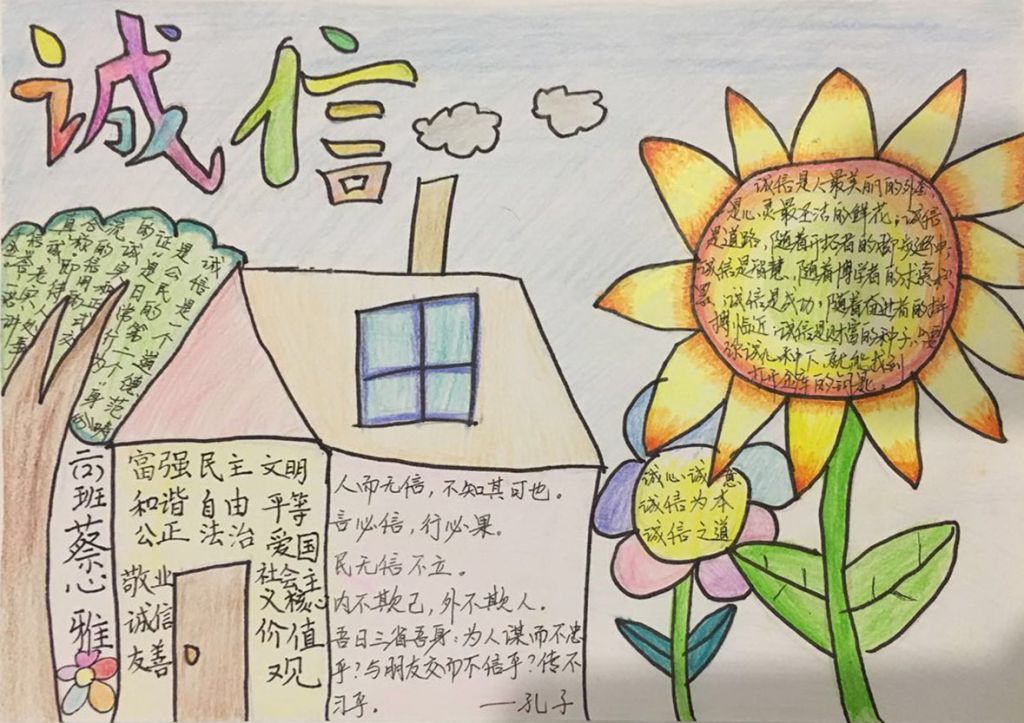 诚信
诚信是一个道德范畴
是公民的第二个“身份
六(2)班蔡心雅
富强民主文明
和谐自由平等
公正法治爱国
敬业
诚信
友善
社会主
义核心
价值
观
人而无信，不知其可也。
言必信，行必果。
民无信不立。
内不欺己，外不欺人。
吾日三省吾身：为人谋而不忠
乎？与朋友交而不信乎？传不
习乎。
——孔子
诚信是人最美丽的外套
是心灵最圣洁的鲜花；诚信
是道路，随着开拓者的脚步延伸，
诚信是智慧，随着博学者的求索积
累，诚信是成功，随着奋进者的拼
搏临近，诚信是财富的种子，只要
你诚心种下，就能找到
打开金库的钥匙。
诚心诚意
诚信为本
诚信之道